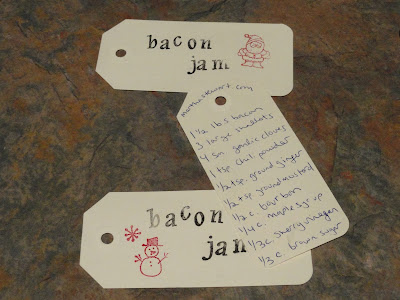 bacon
jam
marthastewart.com
1 ½ lbs bacon
3 large shallots
4 sm garlic cloves
1 tsp chili powder
½ tsp ground ginger
½ tsp ground mustard
½ c. bourbon
¼ c. maple syrup
⅓ c. sherry vinegar
⅓ c. brown sugar
bacon
jam